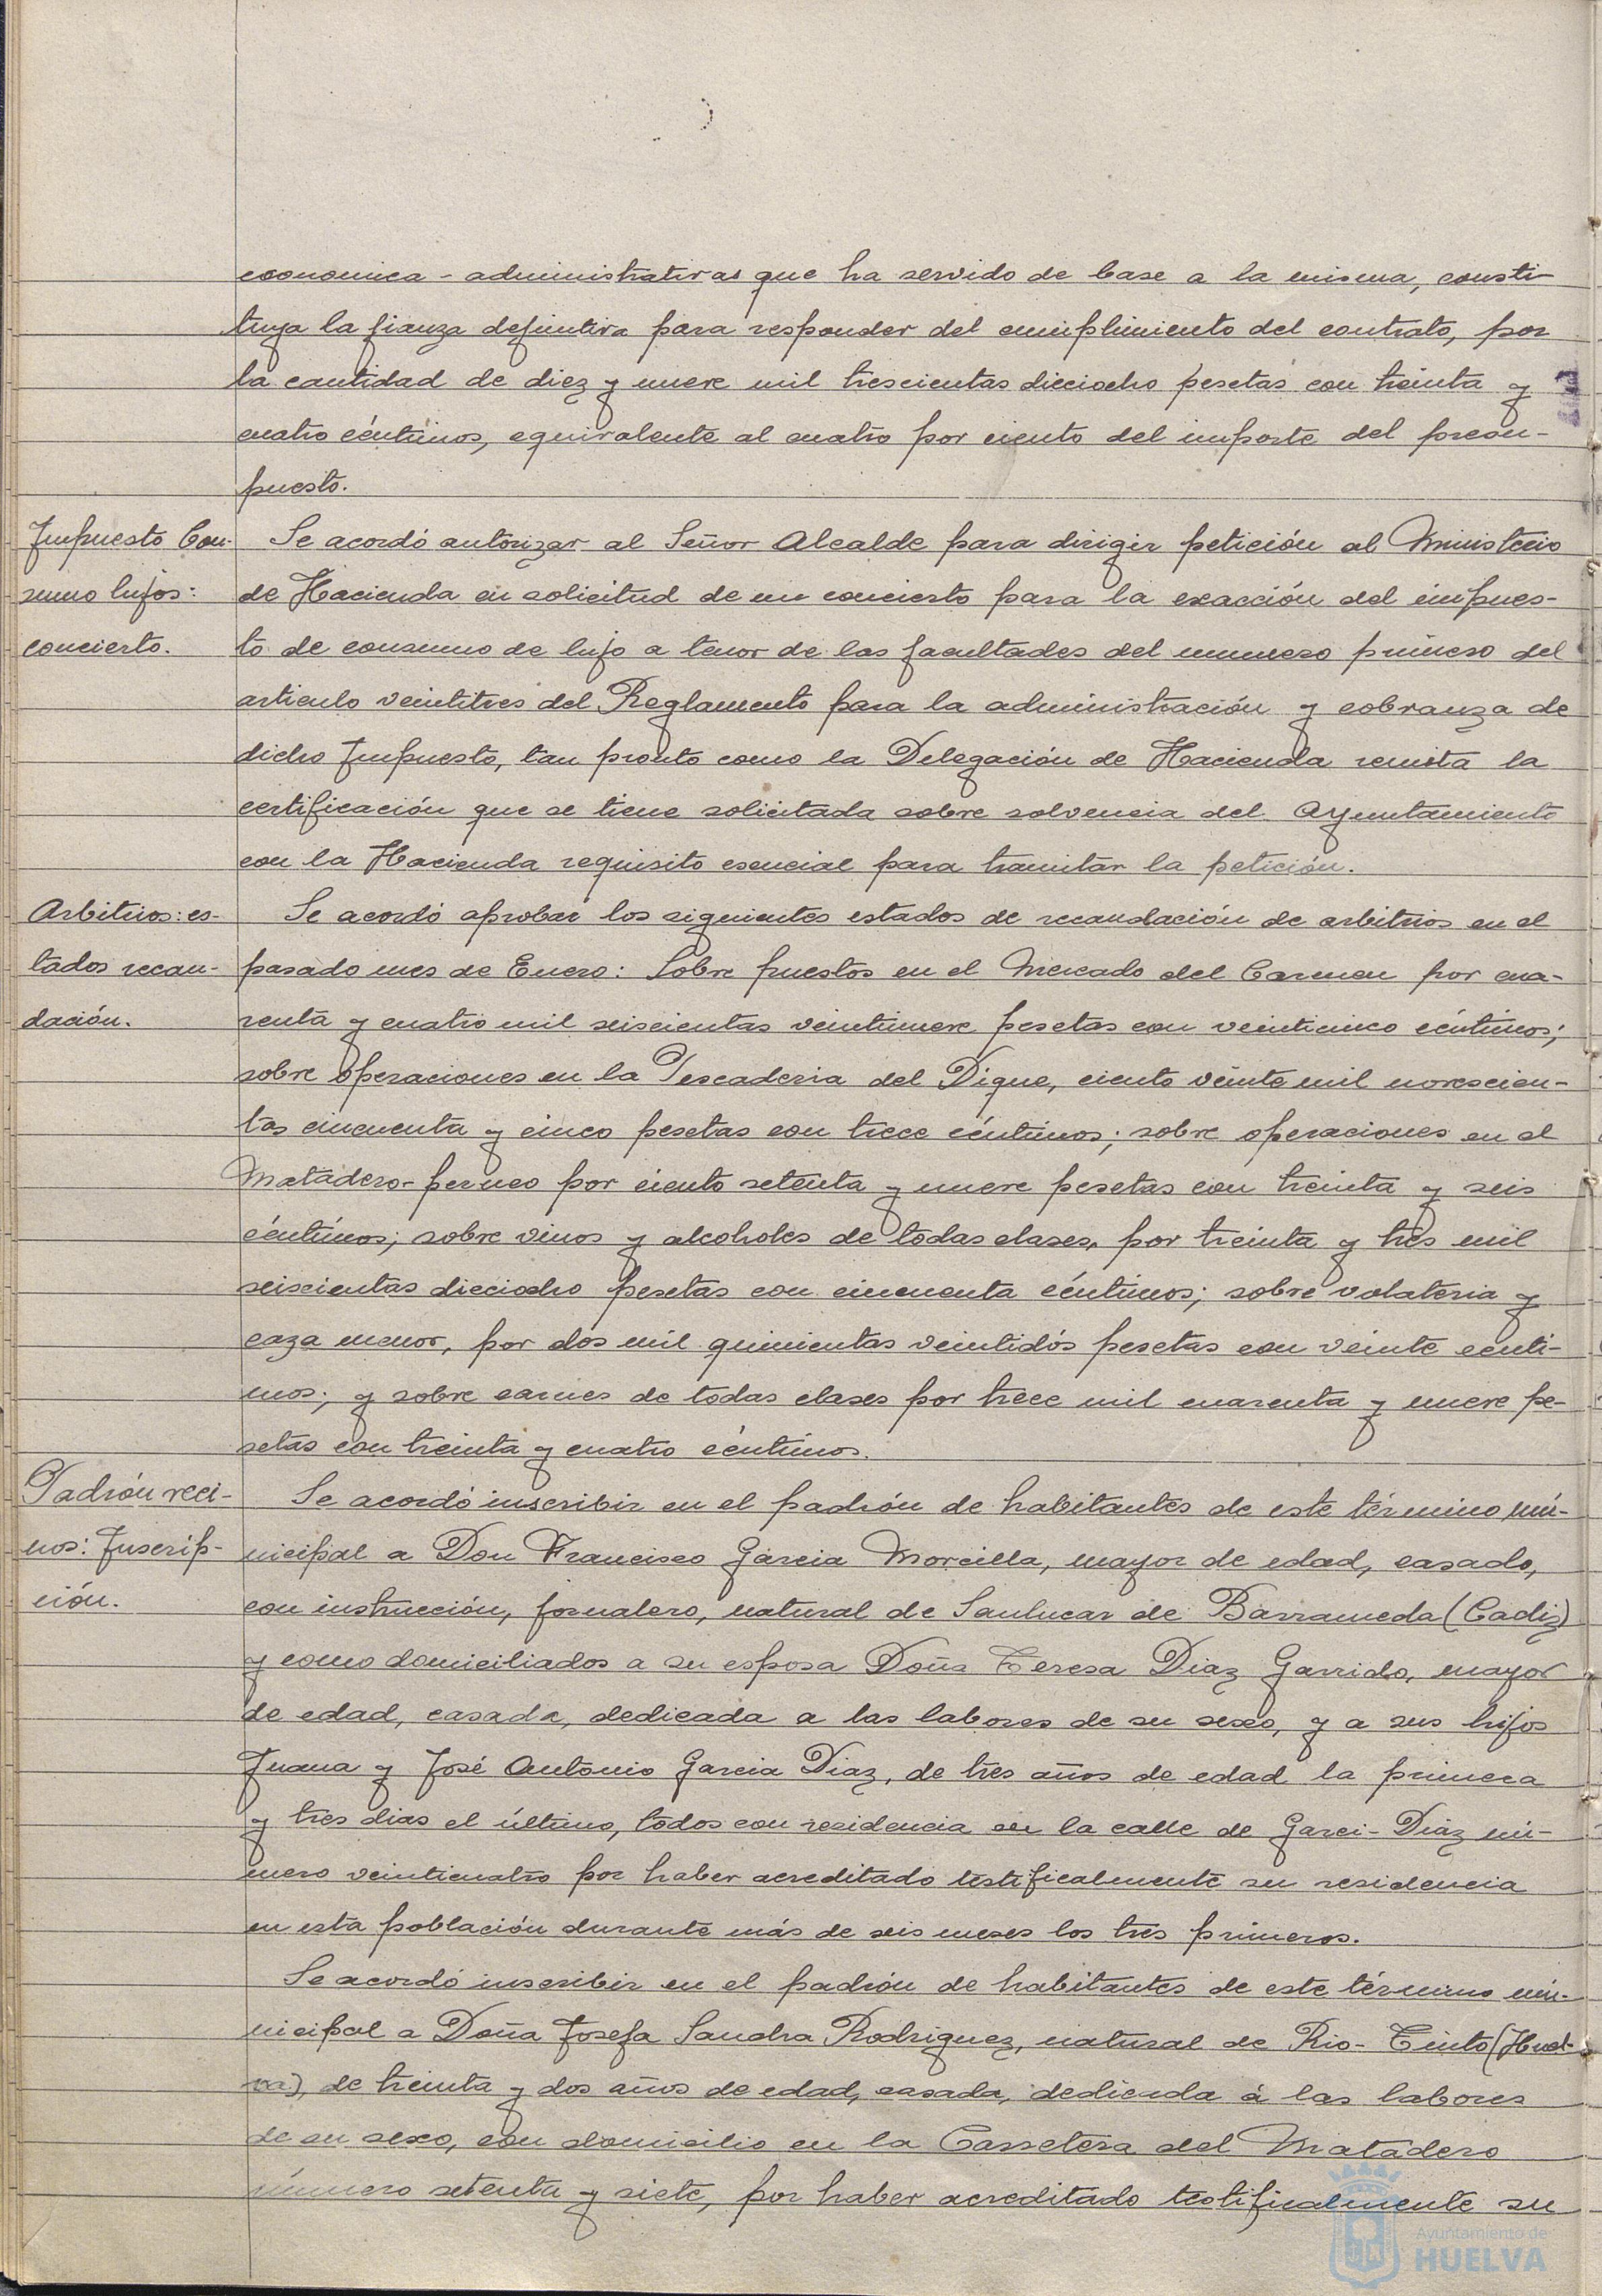 economica-administrativas que ha servido de base a la misma, consti-
tuya la fianza definitiva para responder del cumplimiento del contrato, por
la cantidad de diez y nueve mil trescientas dieciocho pesetas con treinta y
cuatro céntimos, equivalente al cuatro por ciento del importe del presu-
puesto.
Impuesto Con-
sumo lujos:
concierto.
Se acordó autorizar al Señor Alcalde para dirigir petición al Ministerio
de Hacienda en solicitud de un concierto para la exacción del impues-
to de consumo de lujo a tenor de las facultades del numero primero del
articulo veintitres del Reglamento para la administración y cobranza de
dicho Impuesto, tan pronto como la Delegación de Hacienda remita la
certificación que se tiene solicitada sobre solvencia del Ayuntamiento
con la Hacienda requisito esencial para tramitar la petición.
Arbitrios: es-
tados recau-
dación.
Se acordó aprobar los siguientes estados de recaudación de arbitrios en el
pasado mes de Enero: Sobre puestos en el Mercado del Carmen por cua-
renta y cuatro mil seiscientas veintinueve pesetas con veinticinco céntimos;
sobre operaciones en la Pescaderia del Dique, ciento veinte mil novescien-
tas cincuenta y cinco pesetas con trece céntimos; sobre operaciones en el
Matadero-perneo por ciento setenta y nueve pesetas con treinta y seis
céntimos; sobre vinos y alcoholes de todas clases, por treinta y tres mil
seiscientas dieciocho pesetas con cincuenta céntimos; sobre volateria y
caza menor, por dos mil quinientas veintidós pesetas con veinte cénti-
mos; y sobre carnes de todas clases por trece mil cuarenta y nueve pe-
setas con treinta y cuatro céntimos.
Padrón veci-
nos: Inscrip-
ción.
Se acordó inscribir en el padrón de habitantes de este término mu-
nicipal a Don Francisco Garcia Morcilla, mayor de edad, casado,
con instrucción, jornalero, natural de Sanlucar de Barrameda (Cadiz)
y como domiciliados a su esposa Doña Teresa Diaz Garrido, mayor
de edad, casada, dedicada a las labores de su sexo, y a sus hijos
Juana y José Antonio Garcia Diaz, de tres años de edad la primera
y tres dias el último, todos con residencia en la calle de Garci-Diaz nú-
mero veinticuatro por haber acreditado testificalmente su residencia
en esta población durante más de seis meses los tres primeros.
Se acordó inscribir en el padrón de habitantes de este término mu-
nicipal a Doña Josefa Sandra Rodriguez, natural de Rio-Tinto (Huel-
va), de treinta y dos años de edad, casada, dedicada á las labores
de su sexo, con domicilio en la Carretera del Matadero
número setenta y siete, por haber acreditado testificalmente su
Ayuntamiento de
HUELVA